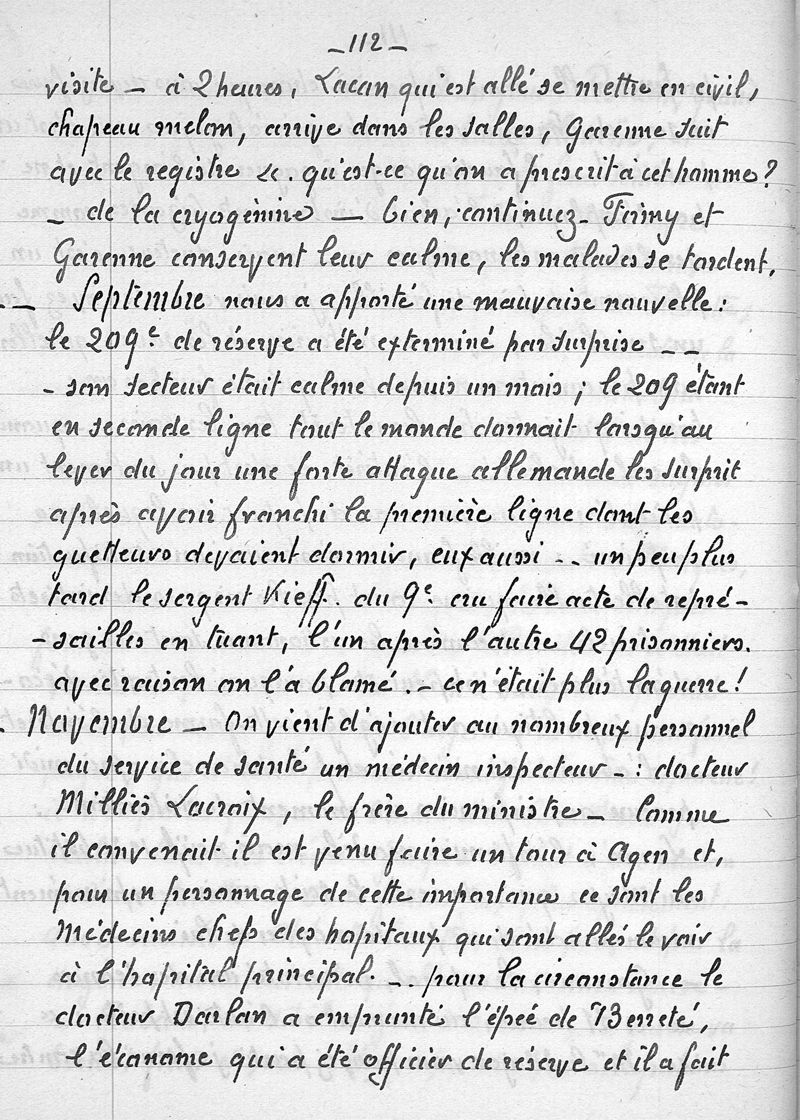 _112_
visite _ à 2 heures, Lacan qui est allé se mettre en civil,
chapeau melon, arrive dans les salles, Garenne suit
avec le registre <. qu'est-ce qu'on a prescrit à cet homme?
_ de la cryogénine — bien, continuez_ Firmy et
Garenne conservent leur calme, les malades se tordent.
-_ Septembre nous a apporté une mauvaise nouvelle:
le 209e de réserve a été exterminé par surprise _ _
- son secteur était calme depuis un mois; le 209 étant
en seconde ligne tout le monde dormait lorsqu'au
lever du jour une forte attaque allemande les surprit
après avoir franchi la première ligne dont les
guetteurs devaient dormir, eux aussi _ _ un peu plus
tard le sergent Kieff. du 9e cru faire acte de repré-
-sailles en tuant, l'un après l'autre 42 prisonniers.
avec raison on l'a blamé._ ce n'était plus la guerre!
. Novembre _ On vient d'ajouter au nombreux personnel
du service de santé un médecin inspecteur_: docteur
Milliès Lacroix, le frère du ministre _ Comme
il convenait il est venu faire un tour à Agen et,
pour un personnage de cette importance ce sont les
Médecins chefs des hopitaux qui sont allés le voir
à l'hopital principal. _. pour la circonstance le
docteur Darlan a emprunté l'épeé de Berreté,
l'économe qui a été officier de réserve et il a fait